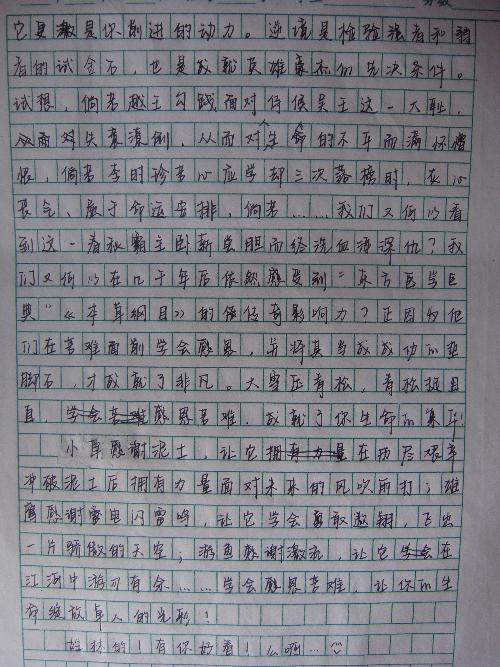 分数
它更激是你前进的动力。逆境是检验强者和弱
者的试金石，也是成就英雄豪杰的先决条件。
试想，倘若越王勾践面对侍候吴王这一大耻，
从而对失衰溃倒，从而对生命的不平而满怀憎
恨，倘若李时珍苦心应学却三次落榜时，灰心
丧气、屈于命运安排，倘若……我们又何以看
到这一春秋霸主卧薪尝胆而终洗血海深仇？我
们又何以在几千年后依然感受到"东方医学巨
典"《本草纲目》的传奇影响力？正因为他
们在苦难面前学会感恩，并将其当成成功的垫
脚石，才成就了非凡。大雪压青松，青松挺且
直，学会苦难感恩苦难，成就了你生命的集
小草感谢泥土，让它拥有力量在历尽艰辛
冲破泥土后拥有力量面对未来的风吹雨打；雄
鹰感谢雷电闪雷鸣，让它学会勇敢翱翔，飞出
一片骄傲的天空；游鱼感谢激流，让它学会在
江海中游刃有余……学会感恩苦难，让你的生
命绽放卓人的光彩！
姓林的！有你好看！么啊…